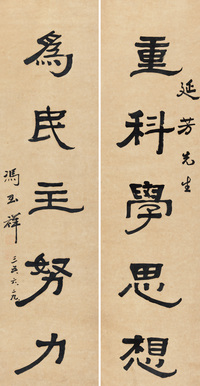 延芳先生
重科學思想
為民主努力
馮玉祥
三五、六、二九